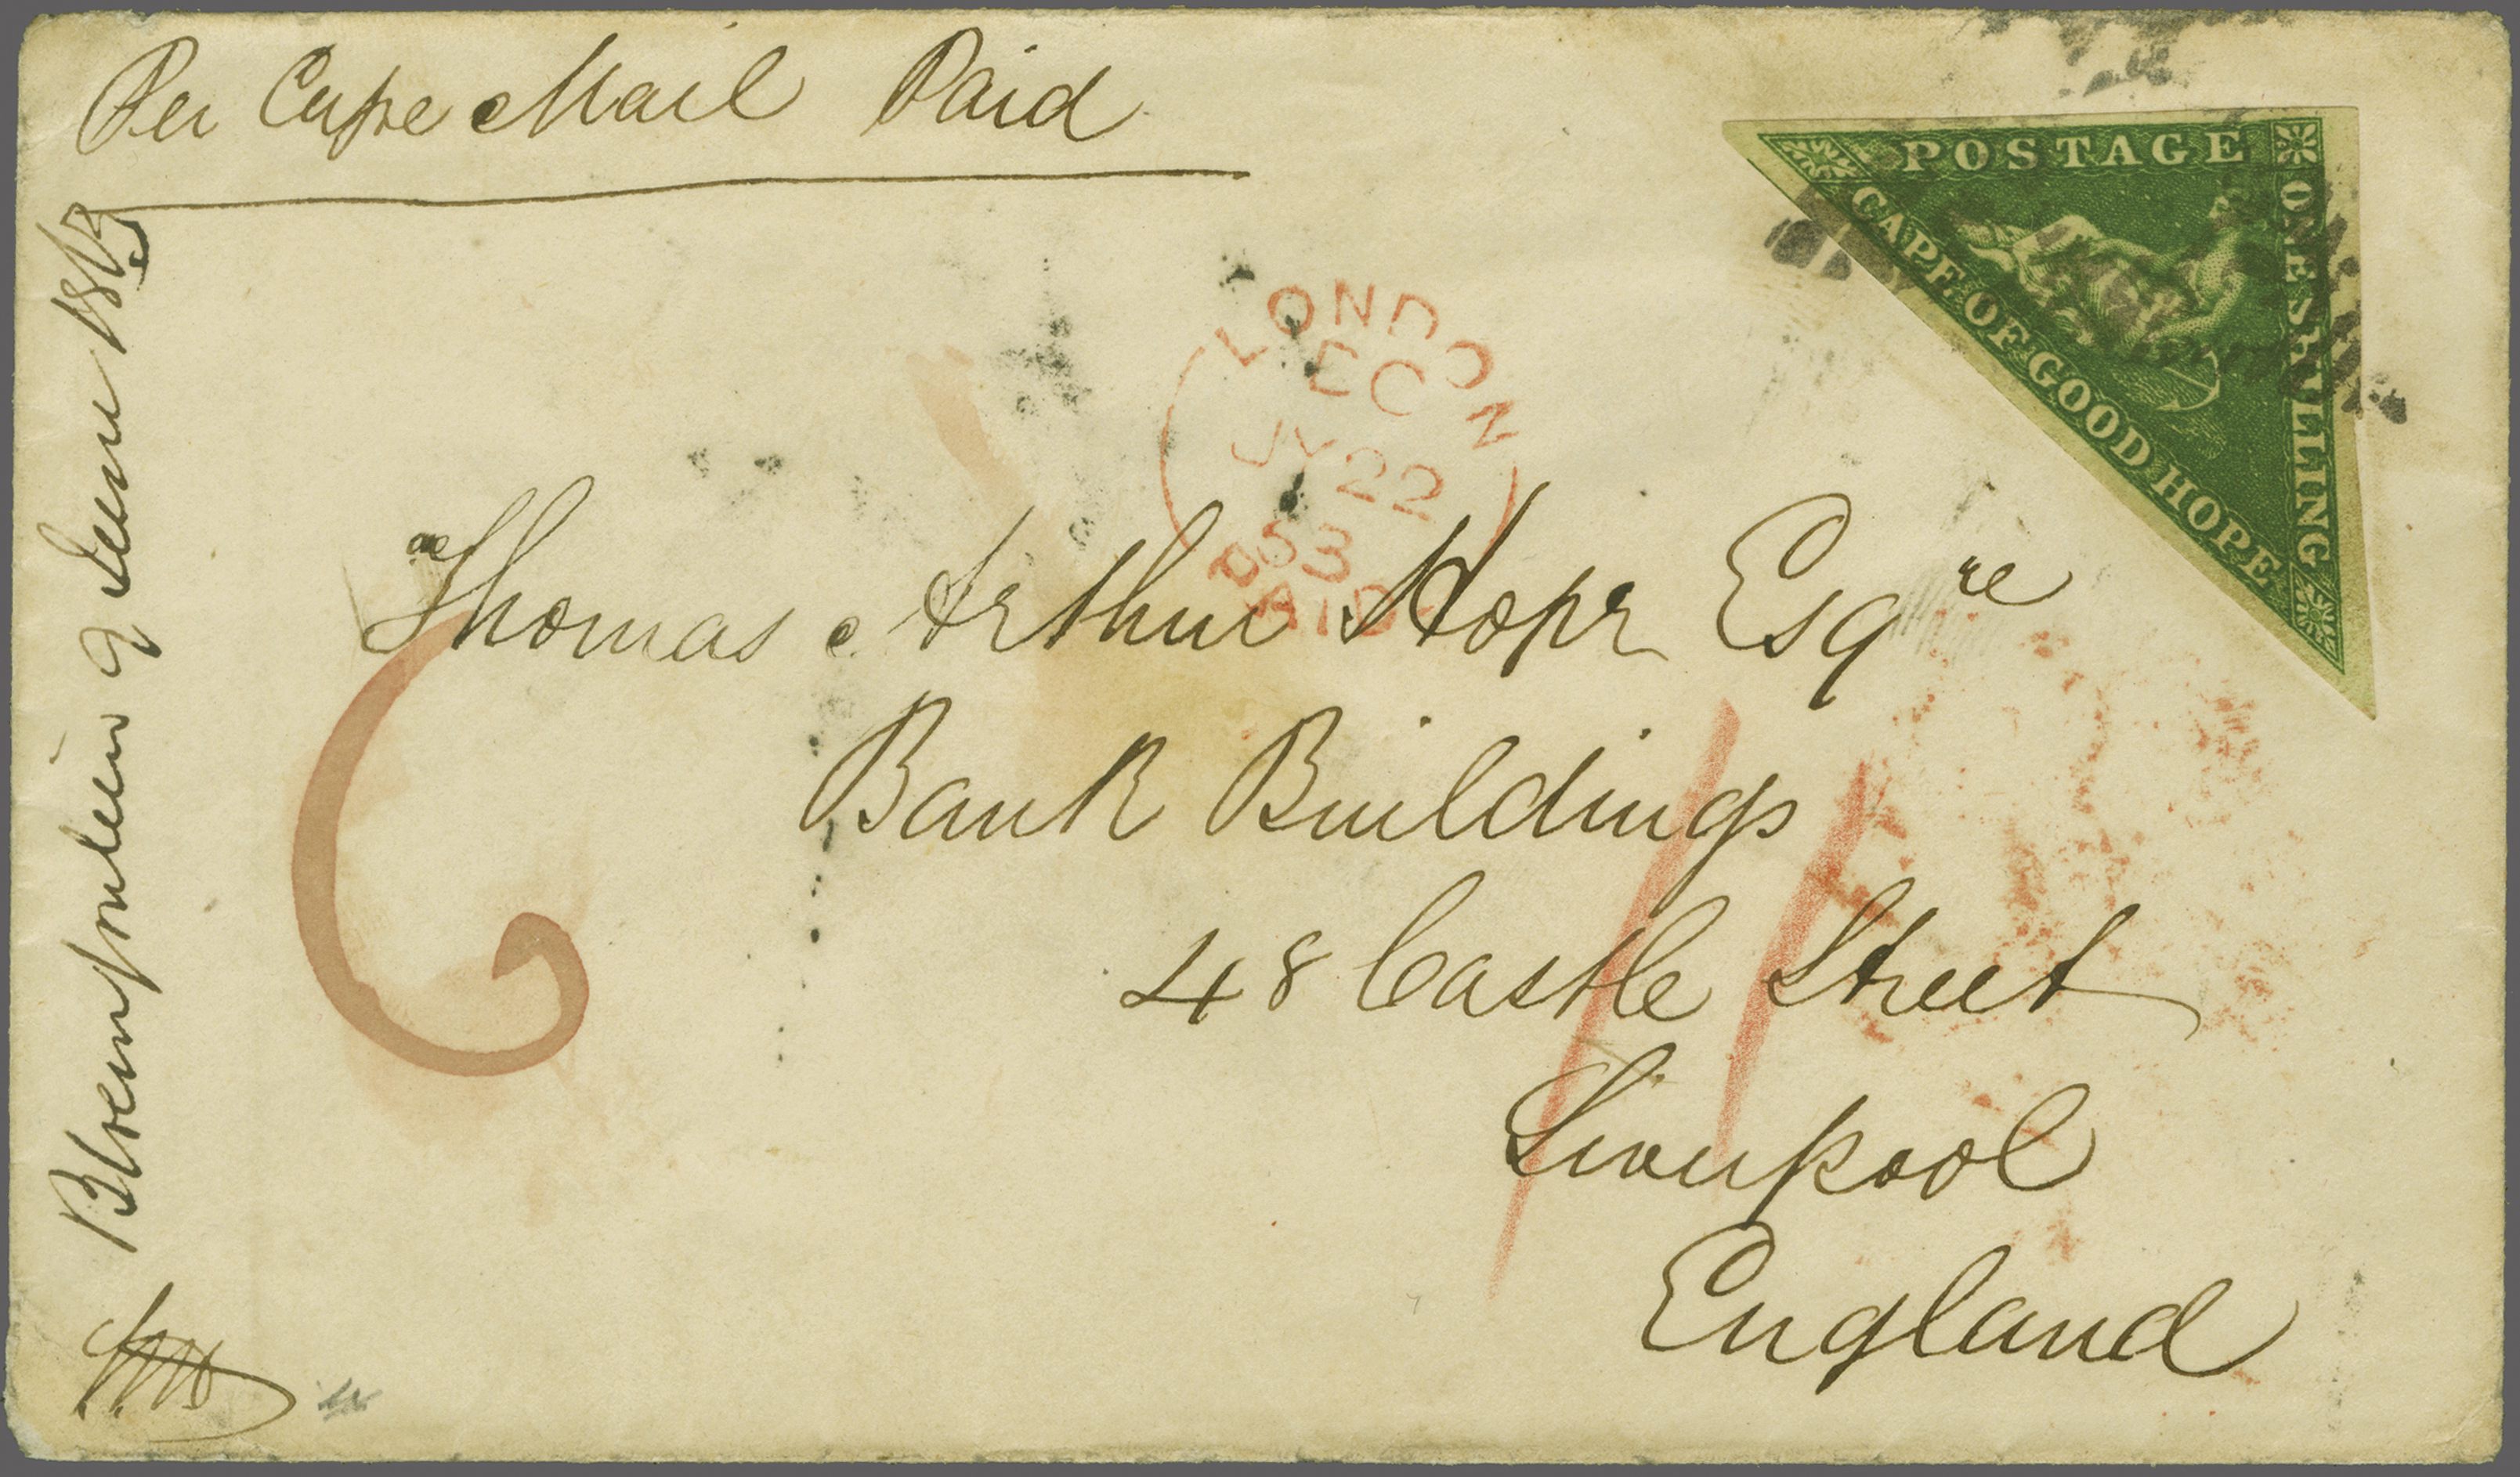 Per Cape Mail Paid
POSTAGE
ONE SHILLING
CAPE OF GOOD HOPE
LONDON
EC
JY 22
63
PAID
Thomas Arthur Hope Esqre
Bank Buildings
48 Castle Street
Liverpool
England
Bloemfontein 9 June 1863
6